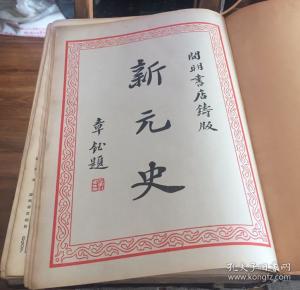 開明書店鑄版
新元史
章鈺題
孔夫子旧书网